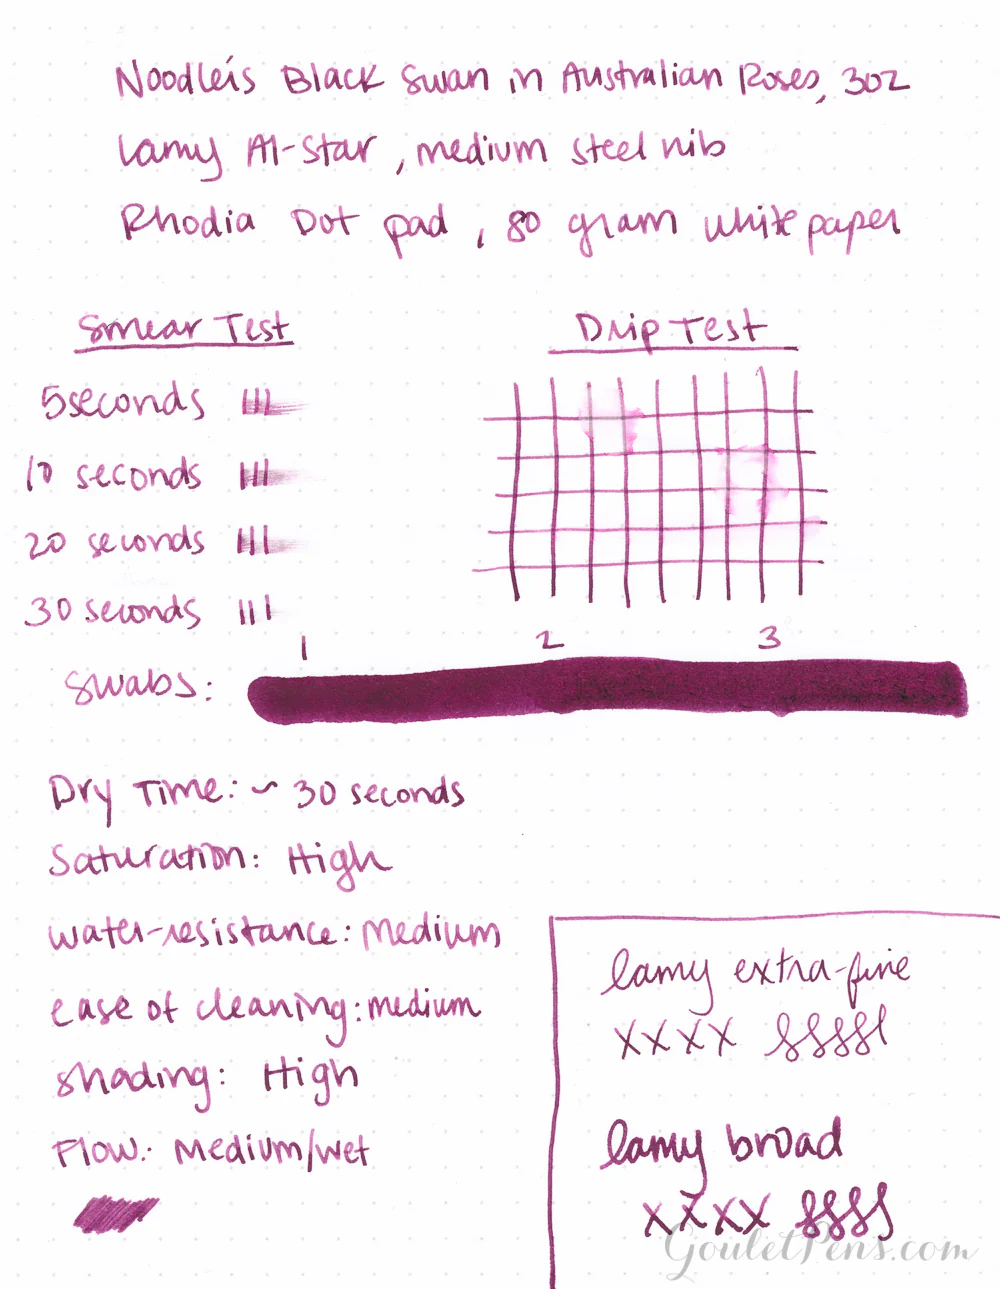 Noodler's Black Swan in Australian Roses, 3oz
Lamy Al-Star, medium steel nib
Rhodia Dot pad, 80 gram white paper
Smear Test
Drip Test
5 seconds
10 seconds
20 seconds
30 seconds
1 2 3
Swabs:
Dry Time: ~ 30 seconds
Saturation: High
water-resistance: Medium
ease of cleaning: medium
shading: High
Flow: Medium/wet
lamy extra-fine
xxxx
lamy broad
xxxx
GouletPens.com